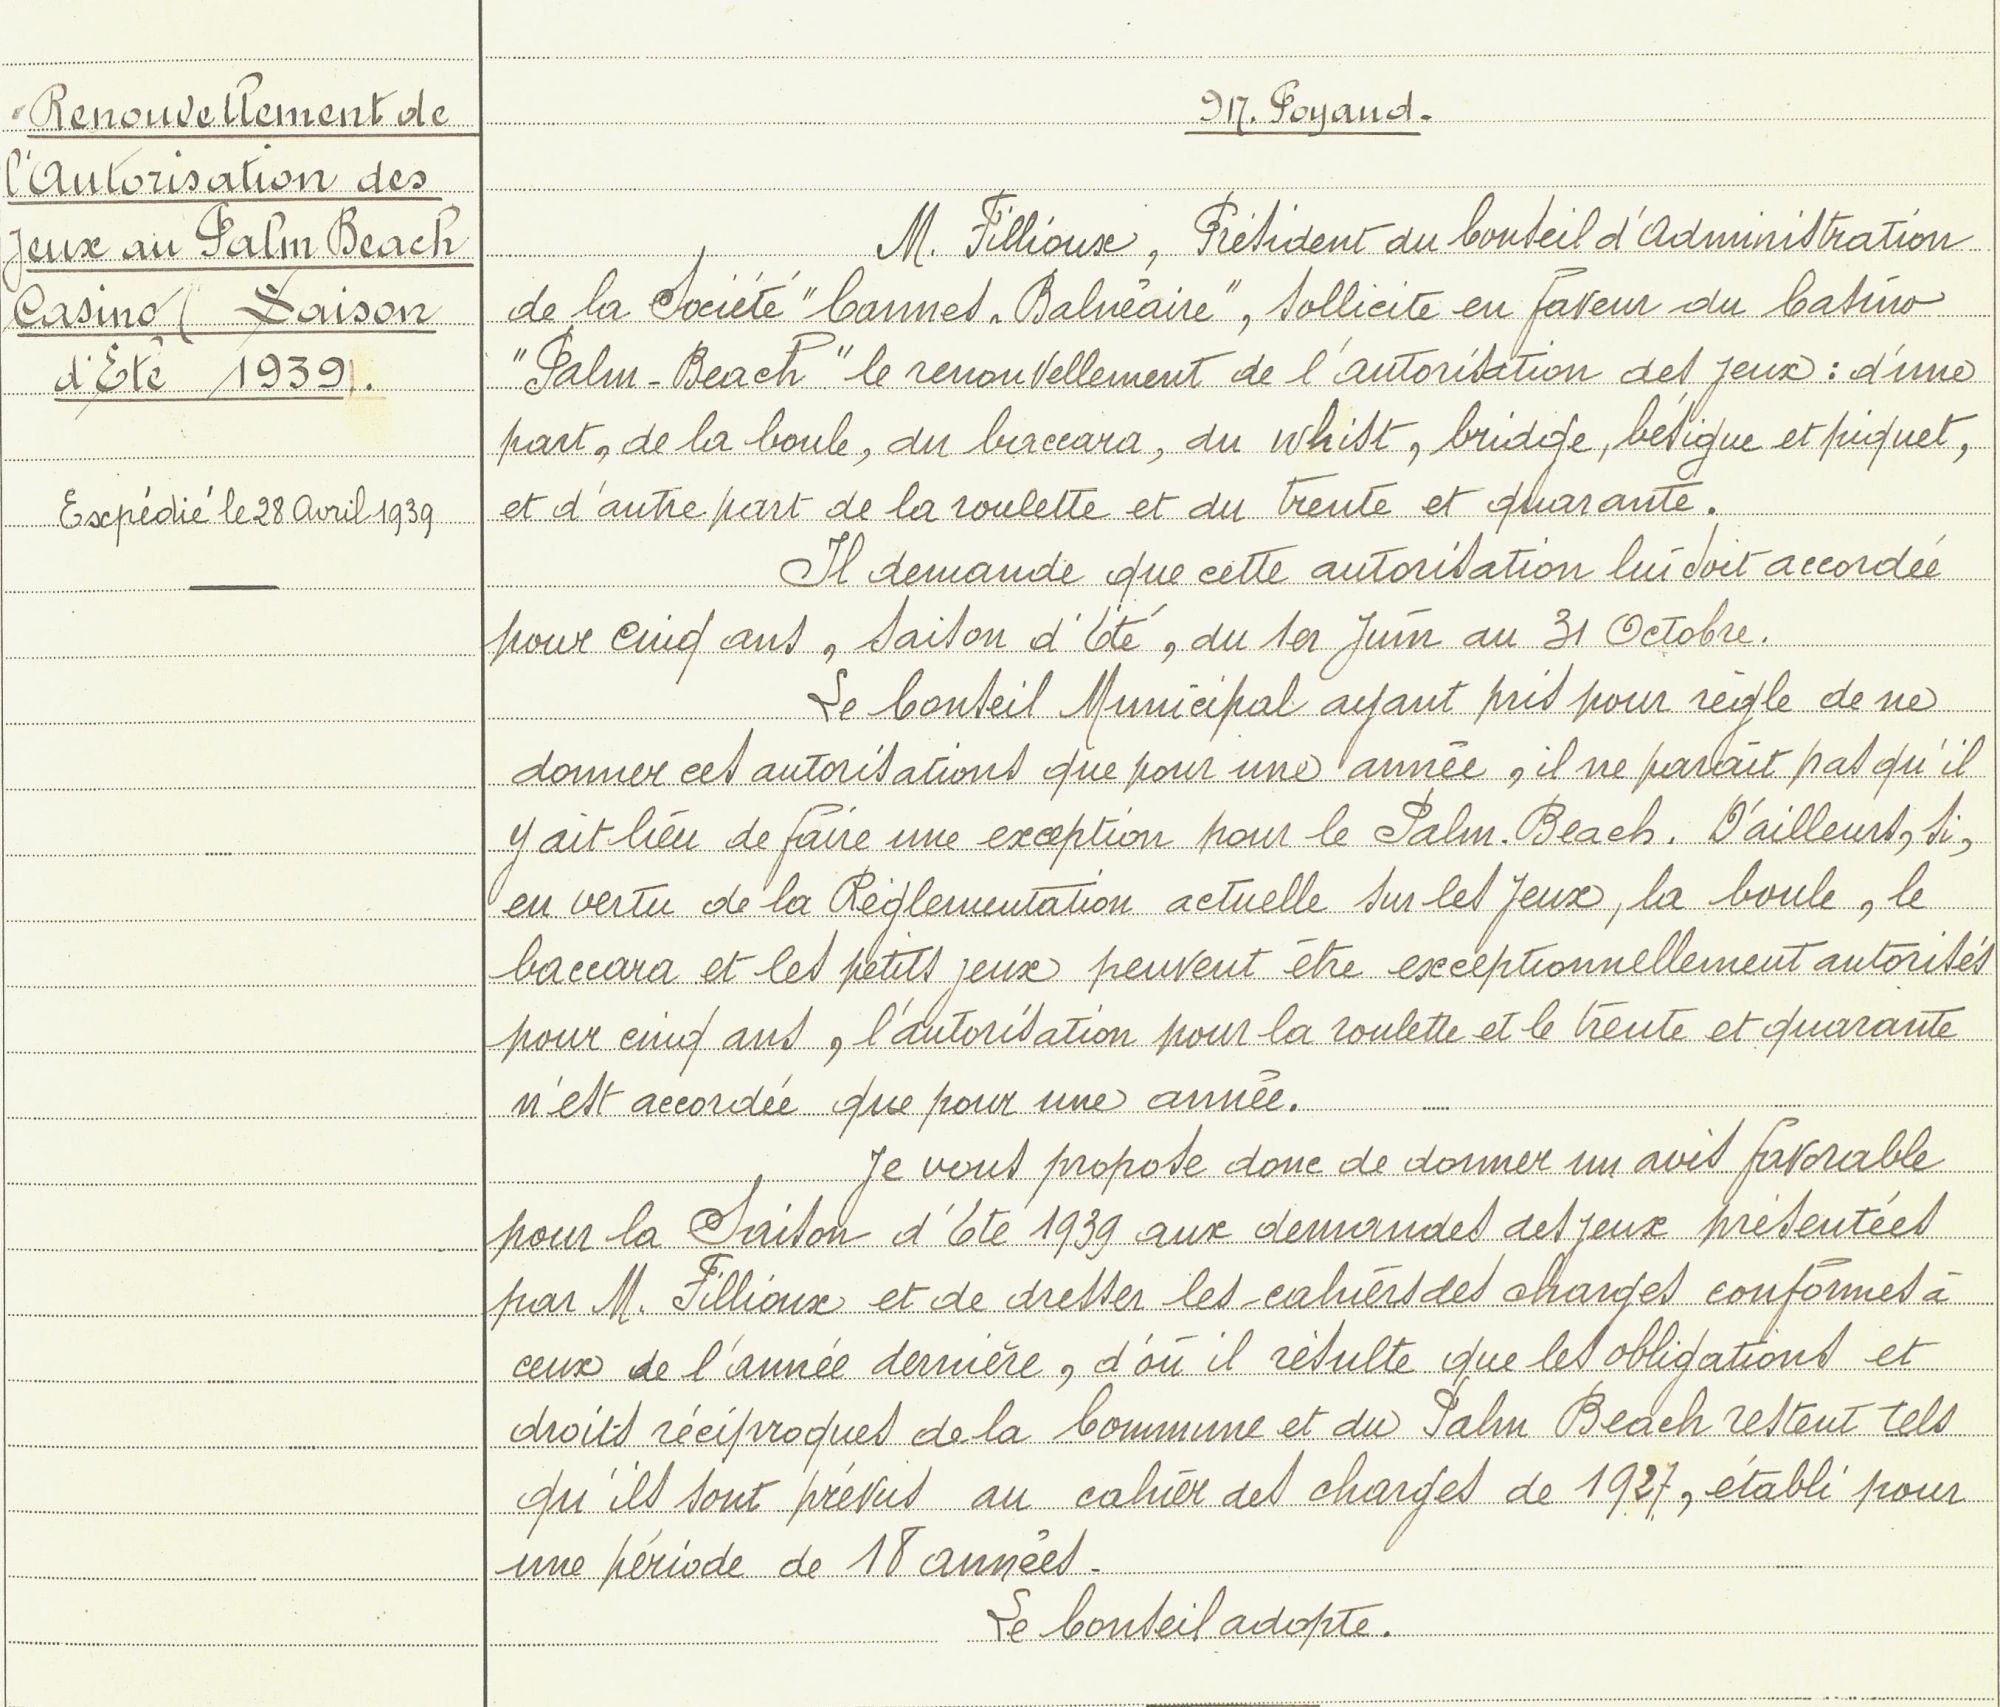 Renouvellement de
l'Autorisation des
Jeux au Palm Beach
Casino (Saison
d'Eté 1939).
Expédié le 28 Avril 1939
M. Poyaud.
M. Fillioux, Président du Conseil d'Administration
de la Société "Cannes-Balnéaire", sollicite en faveur du Casino
"Palm-Beach" le renouvellement de l'autorisation des jeux : d'une
part, de la boule, du baccara, du whist, bridge, bésigue et piquet,
et d'autre part de la roulette et du trente et quarante.
Il demande que cette autorisation lui soit accordée
pour cinq ans, saison d'Eté, du 1er Juin au 31 Octobre.
Le Conseil Municipal ayant pris pour règle de ne
donner ces autorisations que pour une année, il ne parait pas qu'il
y ait lieu de faire une exception pour le Palm-Beach. D'ailleurs, si,
en vertu de la Réglementation actuelle sur les Jeux, la boule, le
baccara et les petits jeux peuvent être exceptionnellement autorisés
pour cinq ans, l'autorisation pour la roulette et le trente et quarante
n'est accordée que pour une année.
Je vous propose donc de donner un avis favorable
pour la Saison d'Eté 1939 aux demandes des jeux présentées
par M. Fillioux et de dresser les cahiers des charges conformes à
ceux de l'année dernière, d'où il résulte que les obligations et
droits réciproques de la Commune et du Palm Beach restent tels
qu'ils sont prévus au cahier des charges de 1927, établi pour
une période de 18 années.
Le Conseil adopte.